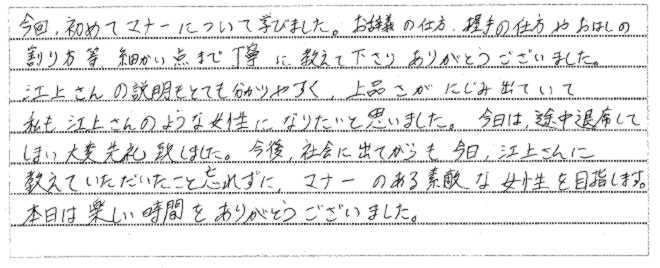 今回、初めてマナーについて学びました。お辞儀の仕方、握手の仕方やおはしの
割り方等 細かい点まで丁寧に教えて下さりありがとうございました。
江上さんの説明もとても分かりやすく、上品さがにじみ出ていて
私も江上さんのような女性になりたいと思いました。今日は、途中退席して
しまい大変失礼致しました。今後、社会に出てからも今日、江上さんに
教えていただいたこと忘れずに、マナーのある素敵な女性を目指します。
本日は楽しい時間をありがとうございました。